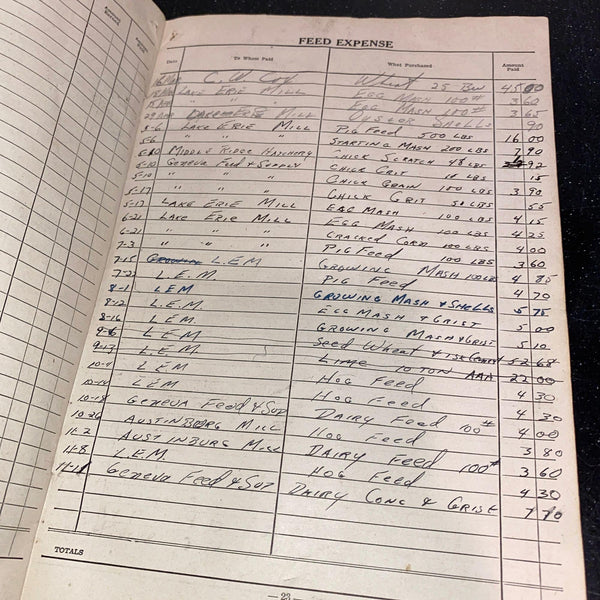 FEED EXPENSE
Date To Whom Paid What Purchased Amount Paid
C. W. Cox Wheat 25 Bu 45 00
Lake Erie Mill Egg Mash 100# 3 60
" " Egg Mash 100# 3 65
Lake Erie Mill Oyster Shells 90
5-6 Lake Erie Mill Pig Feed 500 lbs 16 00
5-6 " " Starting Mash 200 lbs 7 90
5-10 Middle Ridge Hatchery Chick Scratch 48 lbs 92
5-10 Geneva Feed & Supply Chick Grit 10 lbs 15
5-10 " " " Chick Grain 100 lbs 3 90
5-17 " " " Chick Grit 50 lbs 55
5-17 Lake Erie Mill Egg Mash 100 lbs 4 15
6-21 Lake Erie Mill Egg Mash 100 lbs 4 25
6-21 " " " Cracked Corn 100 lbs 4 00
7-3 " " " Pig Feed 100 lbs 3 60
7-15 L.E.M Growing Mash 100 lbs 4 85
7-22 L.E.M. Pig Feed 4 70
8-1 LEM Growing Mash & Shells 5 75
8-12 L.E.M Egg Mash & Grist 5 00
8-16 LEM Growing Mash & Grist 5 10
9-6 L.E.M Seed Wheat & 52 68
9-13 L.E.M Lime 10 Ton AAA 22 00
10-4 L.E.M Hog Feed 4 30
10-14 LEM Hog Feed 4 30
10-18 Geneva Feed & Sup Dairy Feed 100# 4 00
10-26 Austinburg Mill Hog Feed 3 80
11-2 Austinburg Mill Dairy Feed 100# 3 60
11-8 L.E.M Hog Feed 4 30
11-11 Geneva Feed & Sup Dairy Conc & Grist 7 70
TOTALS
— 23 —